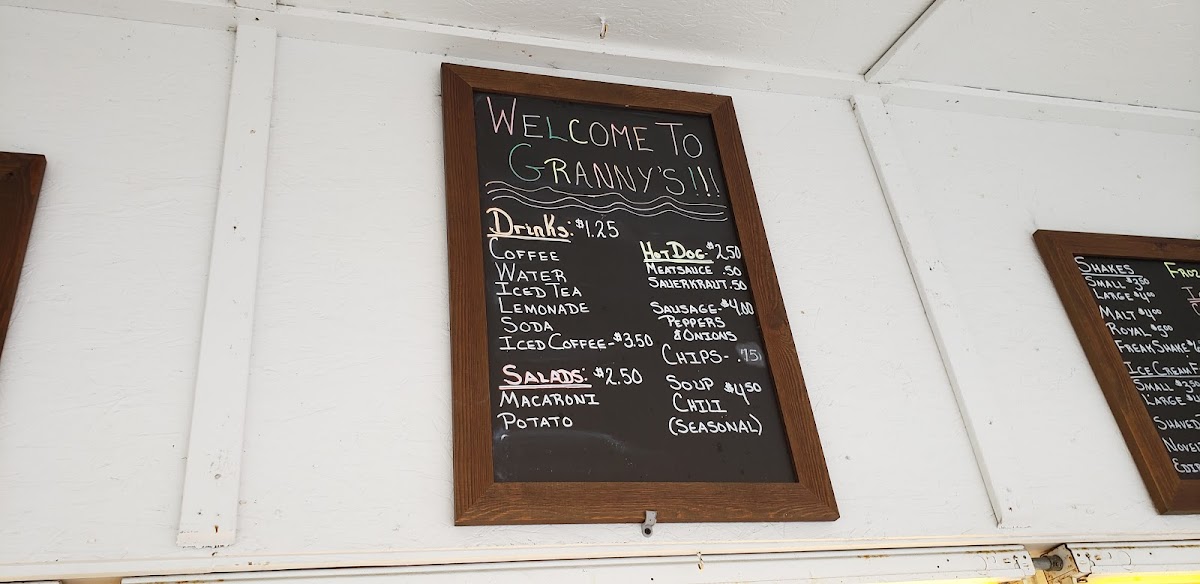 WELCOME TO
GRANNY'S!!!
Drinks: $1.25
COFFEE
WATER
ICED TEA
LEMONADE
SODA
ICED COFFEE-$3.50
SALADS: $2.50
MACARONI
POTATO
HOT DOG $2.50
MEATSAUCE .50
SAUERKRAUT .50
SAUSAGE-$4.00
PEPPERS
&ONIONS
CHIPS- .75
SOUP $4.50
CHILI
(SEASONAL)
SHAKES
SMALL $3.50
LARGE $4.00
MALT $4.00
ROYAL $5.00
FREAKSHAKE
ICE CREAM
SMALL
LARGE
SHAVED